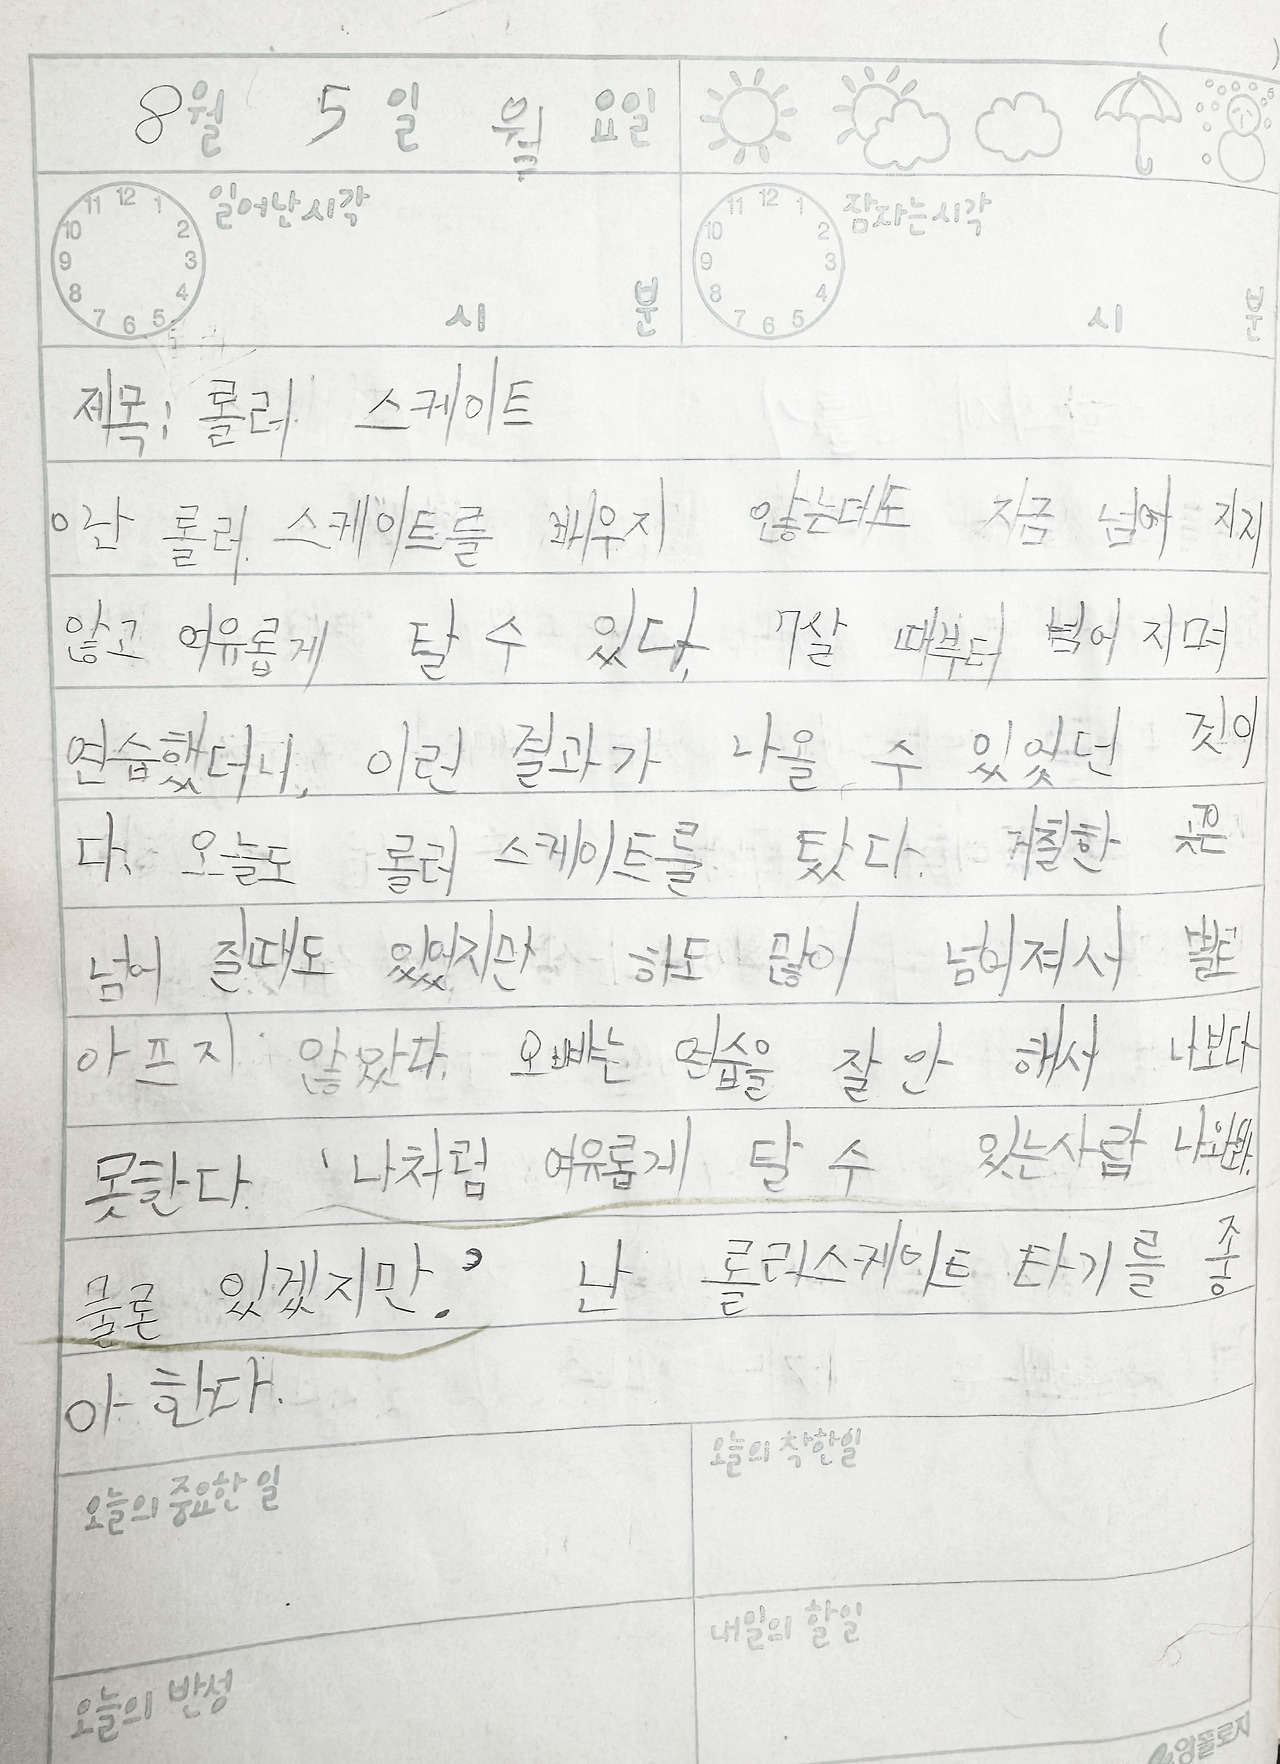 8월 5일 월요일
일어난시각
12 1 2 3 4 5 6 7 8 9 10 11
시 분
잠자는시각
12 1 2 3 4 5 6 7 8 9 10 11
시 분
제목: 롤러 스케이트
난 롤러 스케이트를 배우지 않는데도 지금 넘어 지지
않고 여유롭게 탈 수 있다. 7살 때부터 넘어 지며
연습했더니, 이런 결과가 나올 수 있었던 것이
다. 오늘도 롤러 스케이트를 탔다. 거칠한 곳은
넘어 질때도 있었지만 하도 많이 넘어져서 별로
아프지 않았다. 오빠는 연습을 잘 안 해서 나보다
못한다. '나처럼 여유롭게 탈 수 있는사람 나와봐.
물론 있겠지만.' 난 롤러스케이트 타기를 좋
아 한다.
오늘의 중요한 일
오늘의 착한일
오늘의 반성
내일의 할일
양돌로지